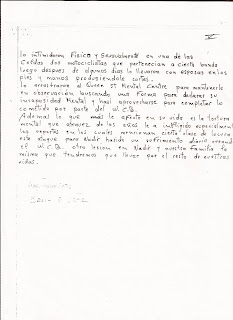 V
lo intimidaron Física y Sexualmente en una de las
Celdas dos motociclistas que pertenecian a cierta banda
luego despues de algunos dias lo llevaron con esposas en los
pies y manos produciendole cortes.
lo arrastraron al Queen ST Mental Centre para mantenerlo
en observacion buscando una Forma para declarar su
incapasidad Mental y haci aprovecharse para completar lo
cometido por parte del W.C.B.
Ademas lo que mas le afecto en su vida es la tortura
mental que atravez de los años le a infligido especialmente
los reportes en los cuales mencionan cierta clase de locura
este ataque para Eladir hasido un sufrimiento diario creando
el W.C.B. otra lesion en Eladir y nuestra Familia lo
mismo que tendremos que llevar por el resto de nuestras
vidas.